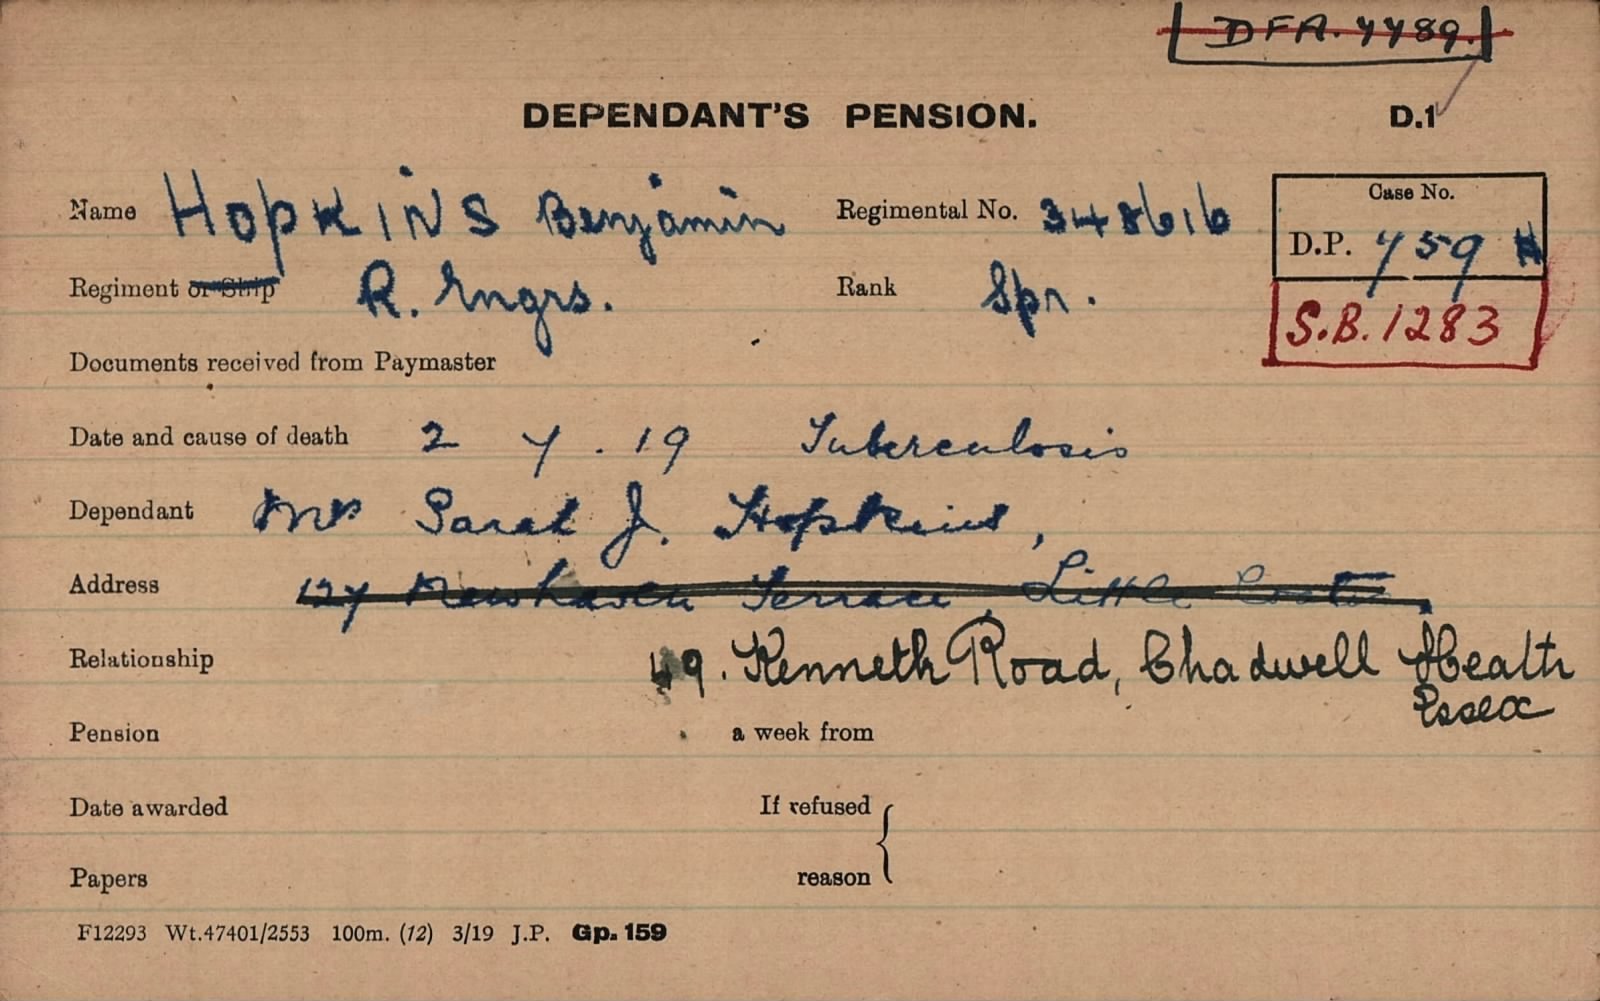 DFA. 7789.
DEPENDANT'S PENSION. D.1
Name HOPKINS Benjamin Regimental No. 348616 Case No.
D.P. 759 H
Regiment or Ship R. Engrs. Rank Spr. S.B. 1283
Documents received from Paymaster
Date and cause of death 2 7 . 19 Tuberculosis
Dependant Mrs Sarah J. Hopkins,
Address 127 Newhaven Terrace, Little
Relationship 49. Kenneth Road, Chadwell Heath
Essex
Pension a week from
Date awarded If refused
Papers reason
F12293 Wt.47401/2553 100m. (12) 3/19 J.P. Gp. 159